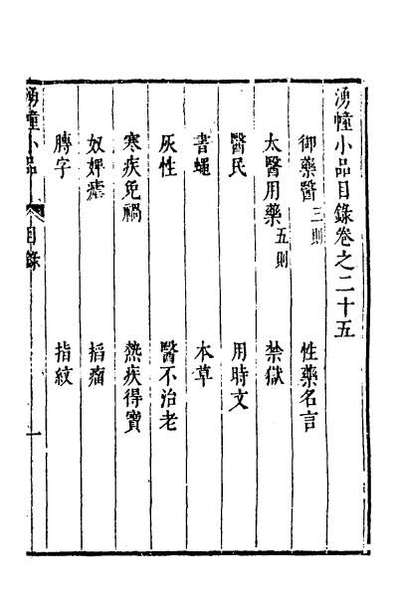 湧幢小品目錄卷之二十五
御藥醫三則　性藥名言
太醫用藥五則　禁獄
醫民　用時文
書蠅　本草
灰性　醫不治老
寒疾免禍　熱疾得寶
奴婢瘧　搯瘤
膞字　指紋
湧幢小品　目錄　一